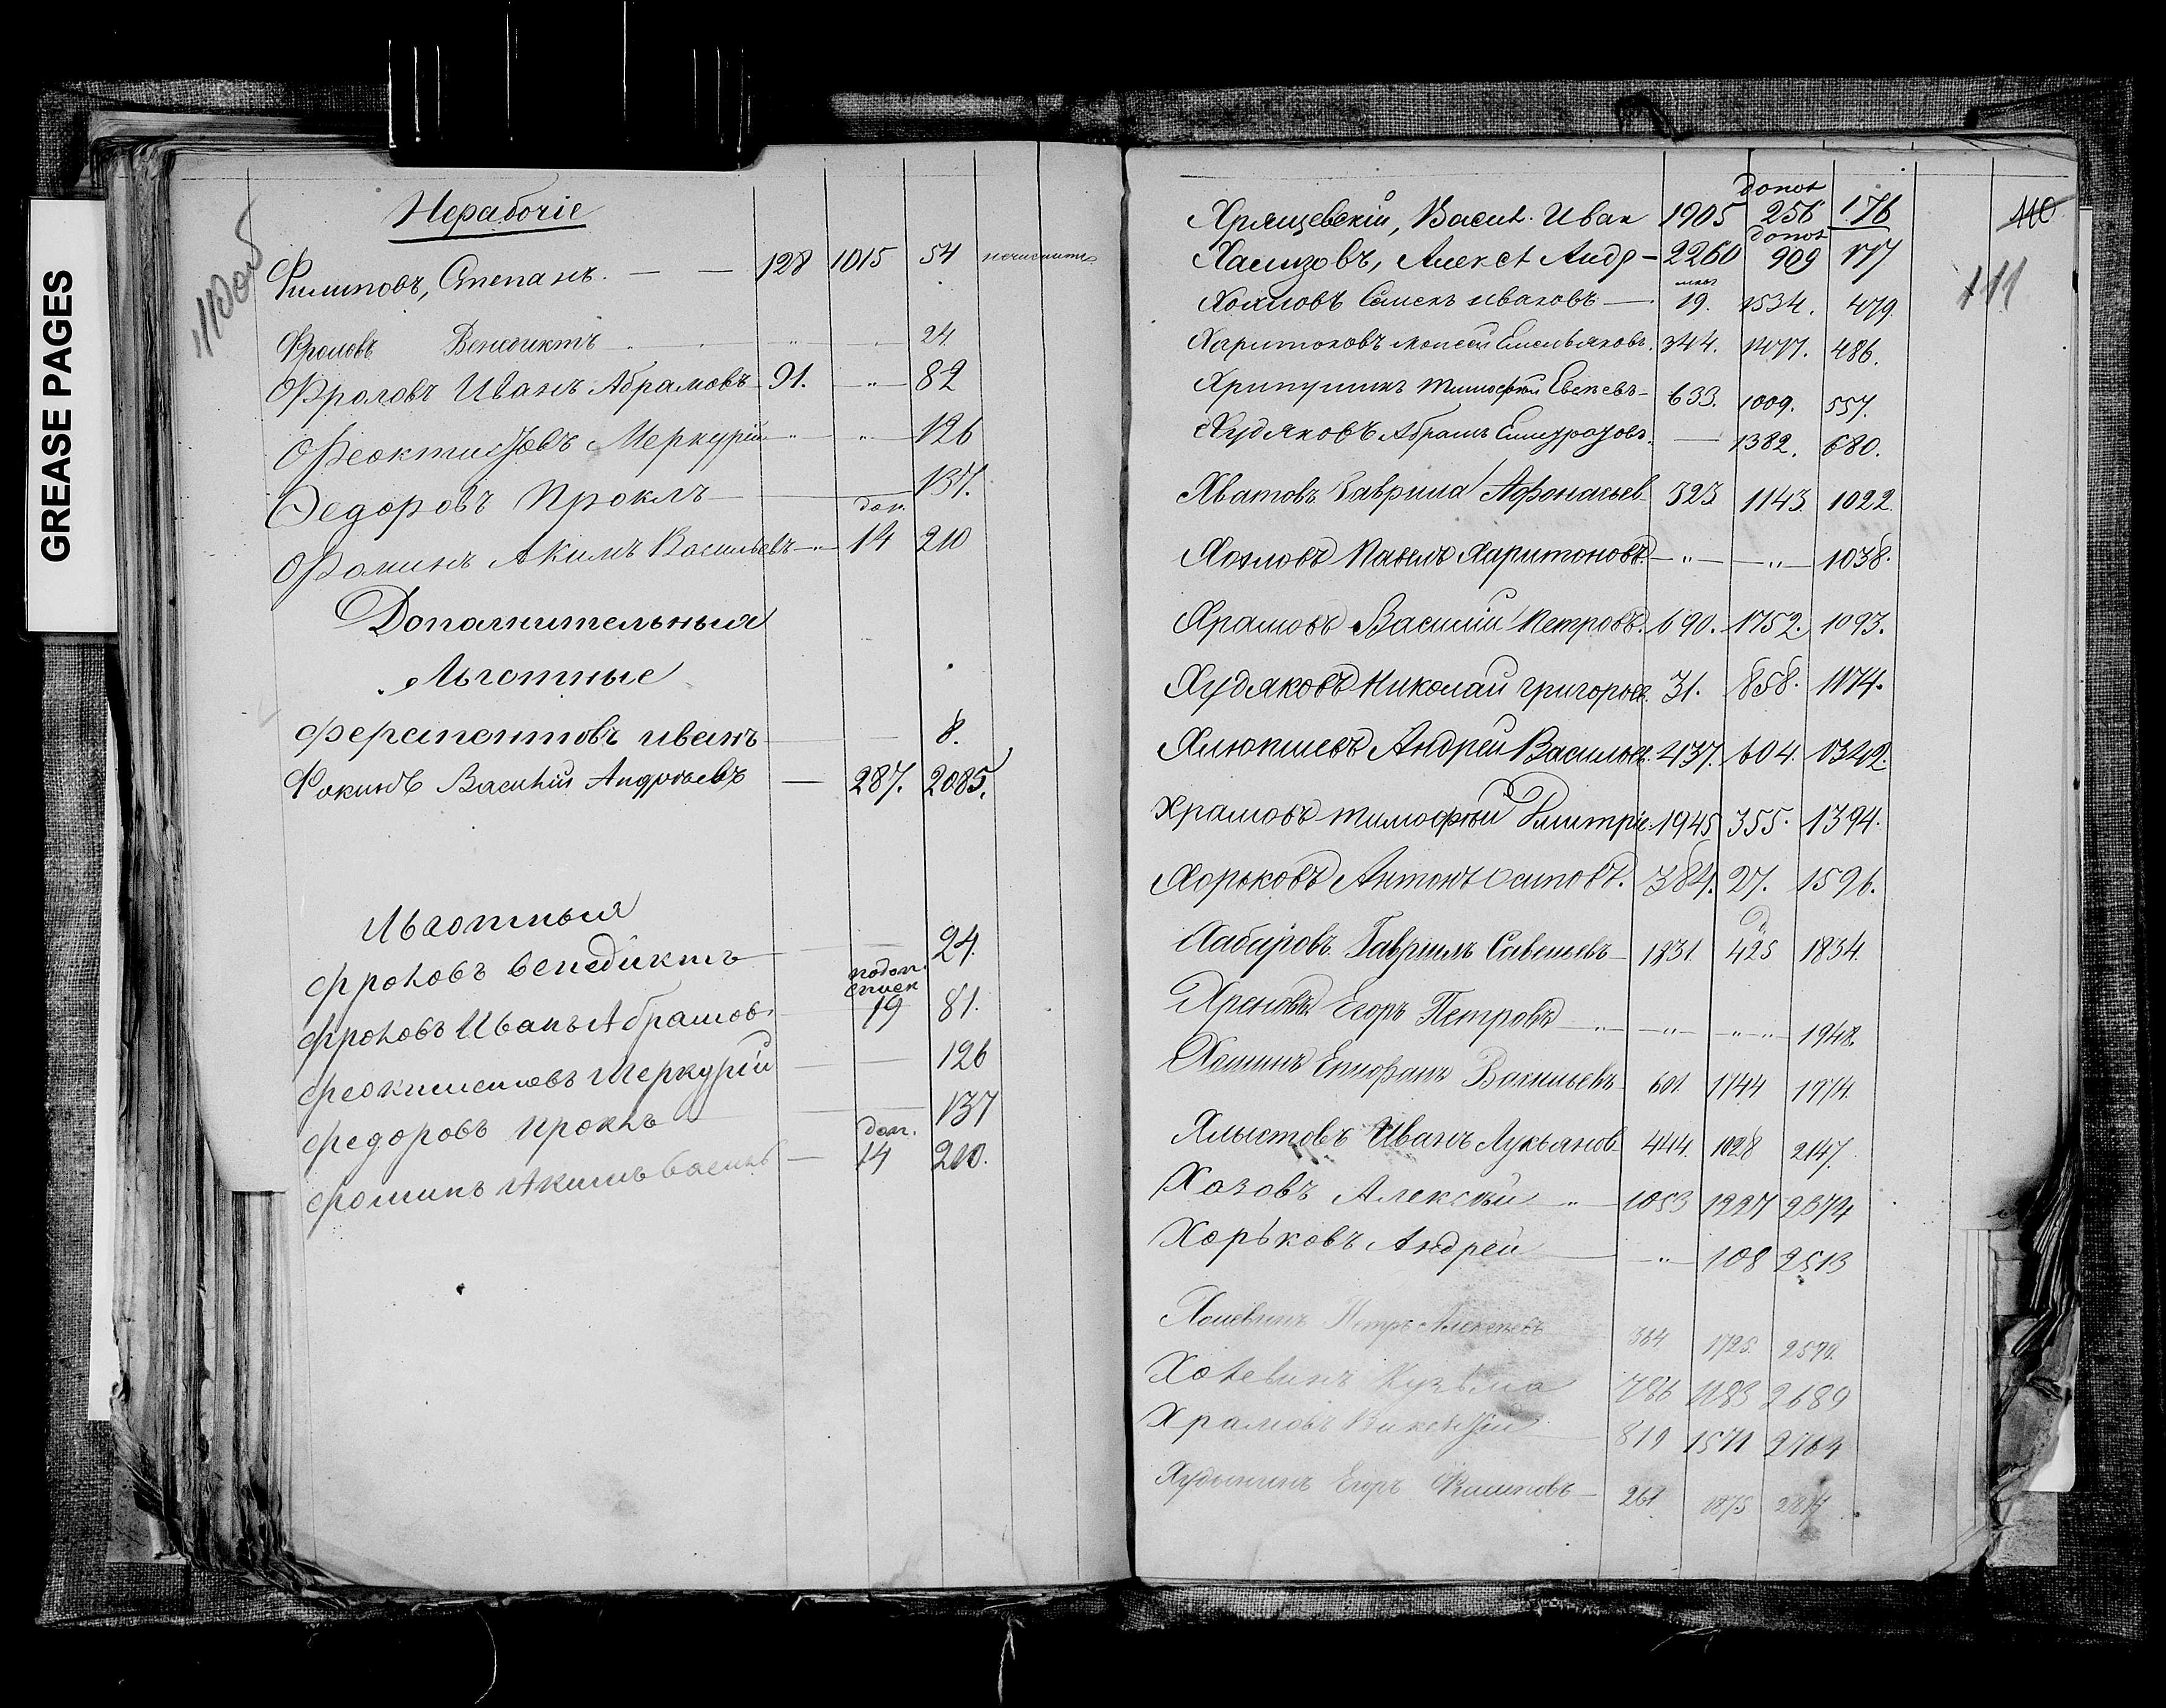 GREASE PAGES
110 об
Нерабочіе
Филиповъ, Степанъ. — — 128 1015 54
Фроловъ Венедиктъ 24.
Фроловъ Иванъ Абрамовъ 91. — „ — 82
Феоктистовъ Меркурій — „ — „ — 126
Федоровъ Проклъ — 137.
доп.
Фоминъ Акимъ Васильевъ — „ — 14 210
Дополнительныя
Льготные
Ферапонтовъ иванъ — 8.
Фокинъ Василій Андреевъ — 287. 2085.
Льготныя
Фроловъ Венедиктъ — 24.
подоп. списк
Фроловъ Иванъ Абрамовъ 19 81.
Феоктистовъ Меркурій — 126
Федоровъ Проклъ — 137
доп.
Фоминъ Акимъ Василь — 14 210.
110
111
допол
Хрящевскій, Васил. Иван 1905 256 176
допол
Алекс Андр — 2260 909 177
Хохловъ Семенъ ивановъ — 19. 1534. 479.
Харитоновъ моисей Емельяновъ. 344. 1477. 486.
Хрипунинъ тимофей 633. 1009. 557.
Худяковъ Абрамъ — 1382. 680.
Хватовъ Гаврила Афонасьев 523 1143. 1022.
Хохловъ Павелъ Харитоновъ. — „ — „ — 1038.
Храмовъ Василій Петровъ. 690. 1752. 1093.
Худяковъ Николай григорьев. 31. 858. 1174.
Андрей Васильев. 437. 604. 1342.
Храмовъ тимофей Дмитріе. 1945 355. 1394.
Хорьковъ Антонъ осиповъ. 384. 27. 1596.
д
Хабаровъ Гаврилъ Савельевъ — 1831 425 1834.
Хреновъ Егоръ Петровъ — „ — „ — 1948.
Хоминъ Епифанъ Васильевъ 601 1744 1974.
Хлыстовъ Иванъ Лукьянов 444. 1028 2147.
Хозовъ Алексѣй — „ — 1053 1227 2374
Хорьковъ Андрей — „ — 108 2513
Петръ Алексеевъ 364 1725. 2590.
Холевинъ Кузьма 786 1183 2689
Храмовъ 819 1571 2764
Егоръ Филиповъ — 261 1875 2817